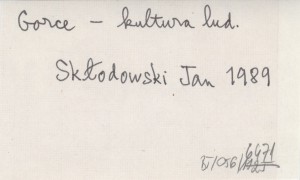 Gorce - kultura lud.
Skłodowski Jan 1989
6971